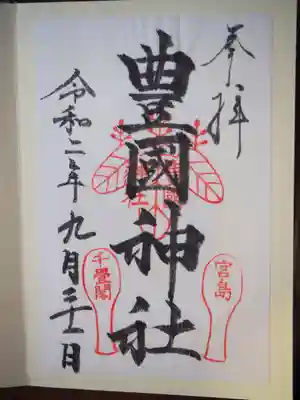 奉拝
豊國神社
宮島
千畳閣
令和二年九月二十一日